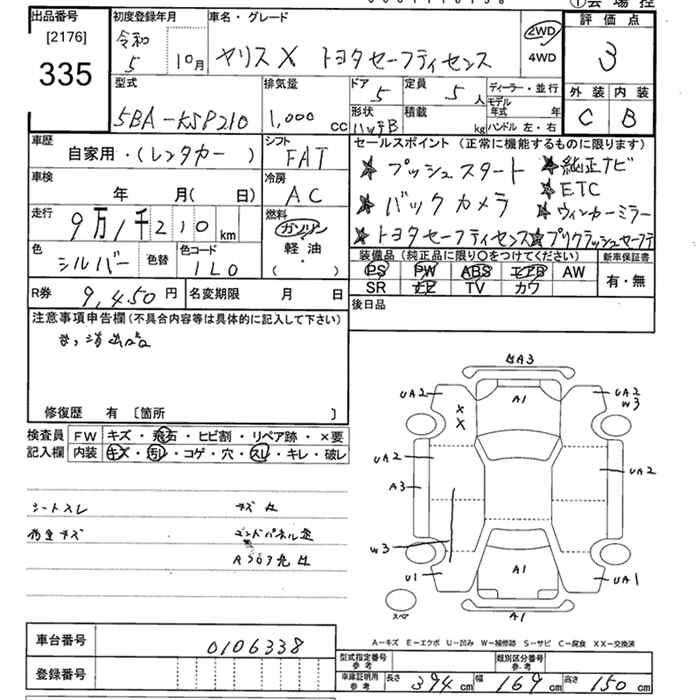 出品番号
[2176]
335
初度登録年月
令和
5 10月
車名・グレード
ヤリス X トヨタセーフティセンス
2WD
4WD
①会場控
評価点
3
外装 内装
C B
型式
5BA-KSP210
排気量
1,000 cc
ドア
5
定員
5 人
形状
ハッチB
積載
kg
ディーラー・並行
モデル
年式 年
ハンドル 左・右
車歴
自家用・(レンタカー)
シフト
FAT
車検
年 月( 日)
冷房
AC
走行
9万1千210 km
燃料
ガソリン
軽油
( ・ )
色
シルバー
色替
色コード
1L0
R券
9,450 円
名変期限 月 日
セールスポイント (正常に機能するものに限ります)
★プッシュスタート ★純正ナビ
★ETC
★バックカメラ ★ウィンカーミラー
★トヨタセーフティセンス★プリクラッシュセーフティ
装備品 (純正品に限り○をつけてください)
PS PW ABS エアB AW
SR ナビ TV カワ
新車保証書
有・無
後日品
注意事項申告欄(不具合内容等は具体的に記入して下さい)
修復歴 有 〔箇所 〕
検査員
記入欄
FW キズ・飛石・ヒビ割・リペア跡・×要
内装 キズ・汚レ・コゲ・穴・スレ・キレ・破レ
シートスレ
UA3
UA2 A1 UA2
W3
UA2 UA2
A3
W3
U1 A1 UA1
スペア
A1
A－キズ E－エクボ U－凹み W－補修跡 S－サビ C－腐食 XX－交換済
車台番号
0106338
登録番号
型式指定番号
参考
類別区分番号
参考
車庫証明用
参考
長さ 394 cm 幅 169 cm 高さ 150 cm